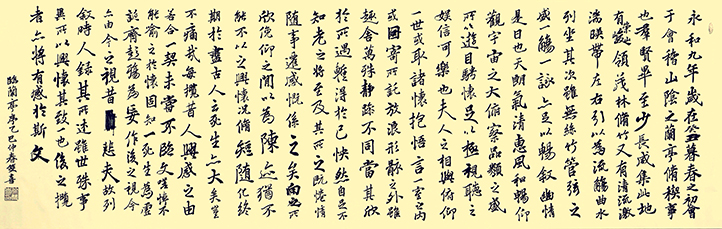 永和九年歲在癸丑暮春之初會
于會稽山陰之蘭亭脩稧事
也群賢畢至少長咸集此地
有崇山峻領茂林脩竹又有清流激
湍暎帶左右引以為流觴曲水
列坐其次雖無絲竹管弦之
盛一觴一詠亦足以暢敘幽情
是日也天朗氣清惠風和暢仰
觀宇宙之大俯察品類之盛
所以遊目騁懷足以極視聽之
娛信可樂也夫人之相與俯仰
一世或取諸懷抱悟言一室之內
或因寄所託放浪形骸之外雖
趣舍萬殊靜躁不同當其欣
於所遇暫得於己怏然自足不
知老之將至及其所之既惓情
隨事遷感慨係之矣向之所
欣俛仰之閒以為陳迹猶不
能不以之興懷況脩短隨化終
期於盡古人云死生亦大矣豈
不痛哉每攬昔人興感之由
若合一契未嘗不臨文嗟悼不
能喻之於懷固知一死生為虛
誕齊彭殤為妄作後之視今
亦由今之視昔悲夫故列
敘時人錄其所述雖世殊事
異所以興懷其致一也後之攬
者亦將有感於斯文
臨蘭亭序乙巳仲春